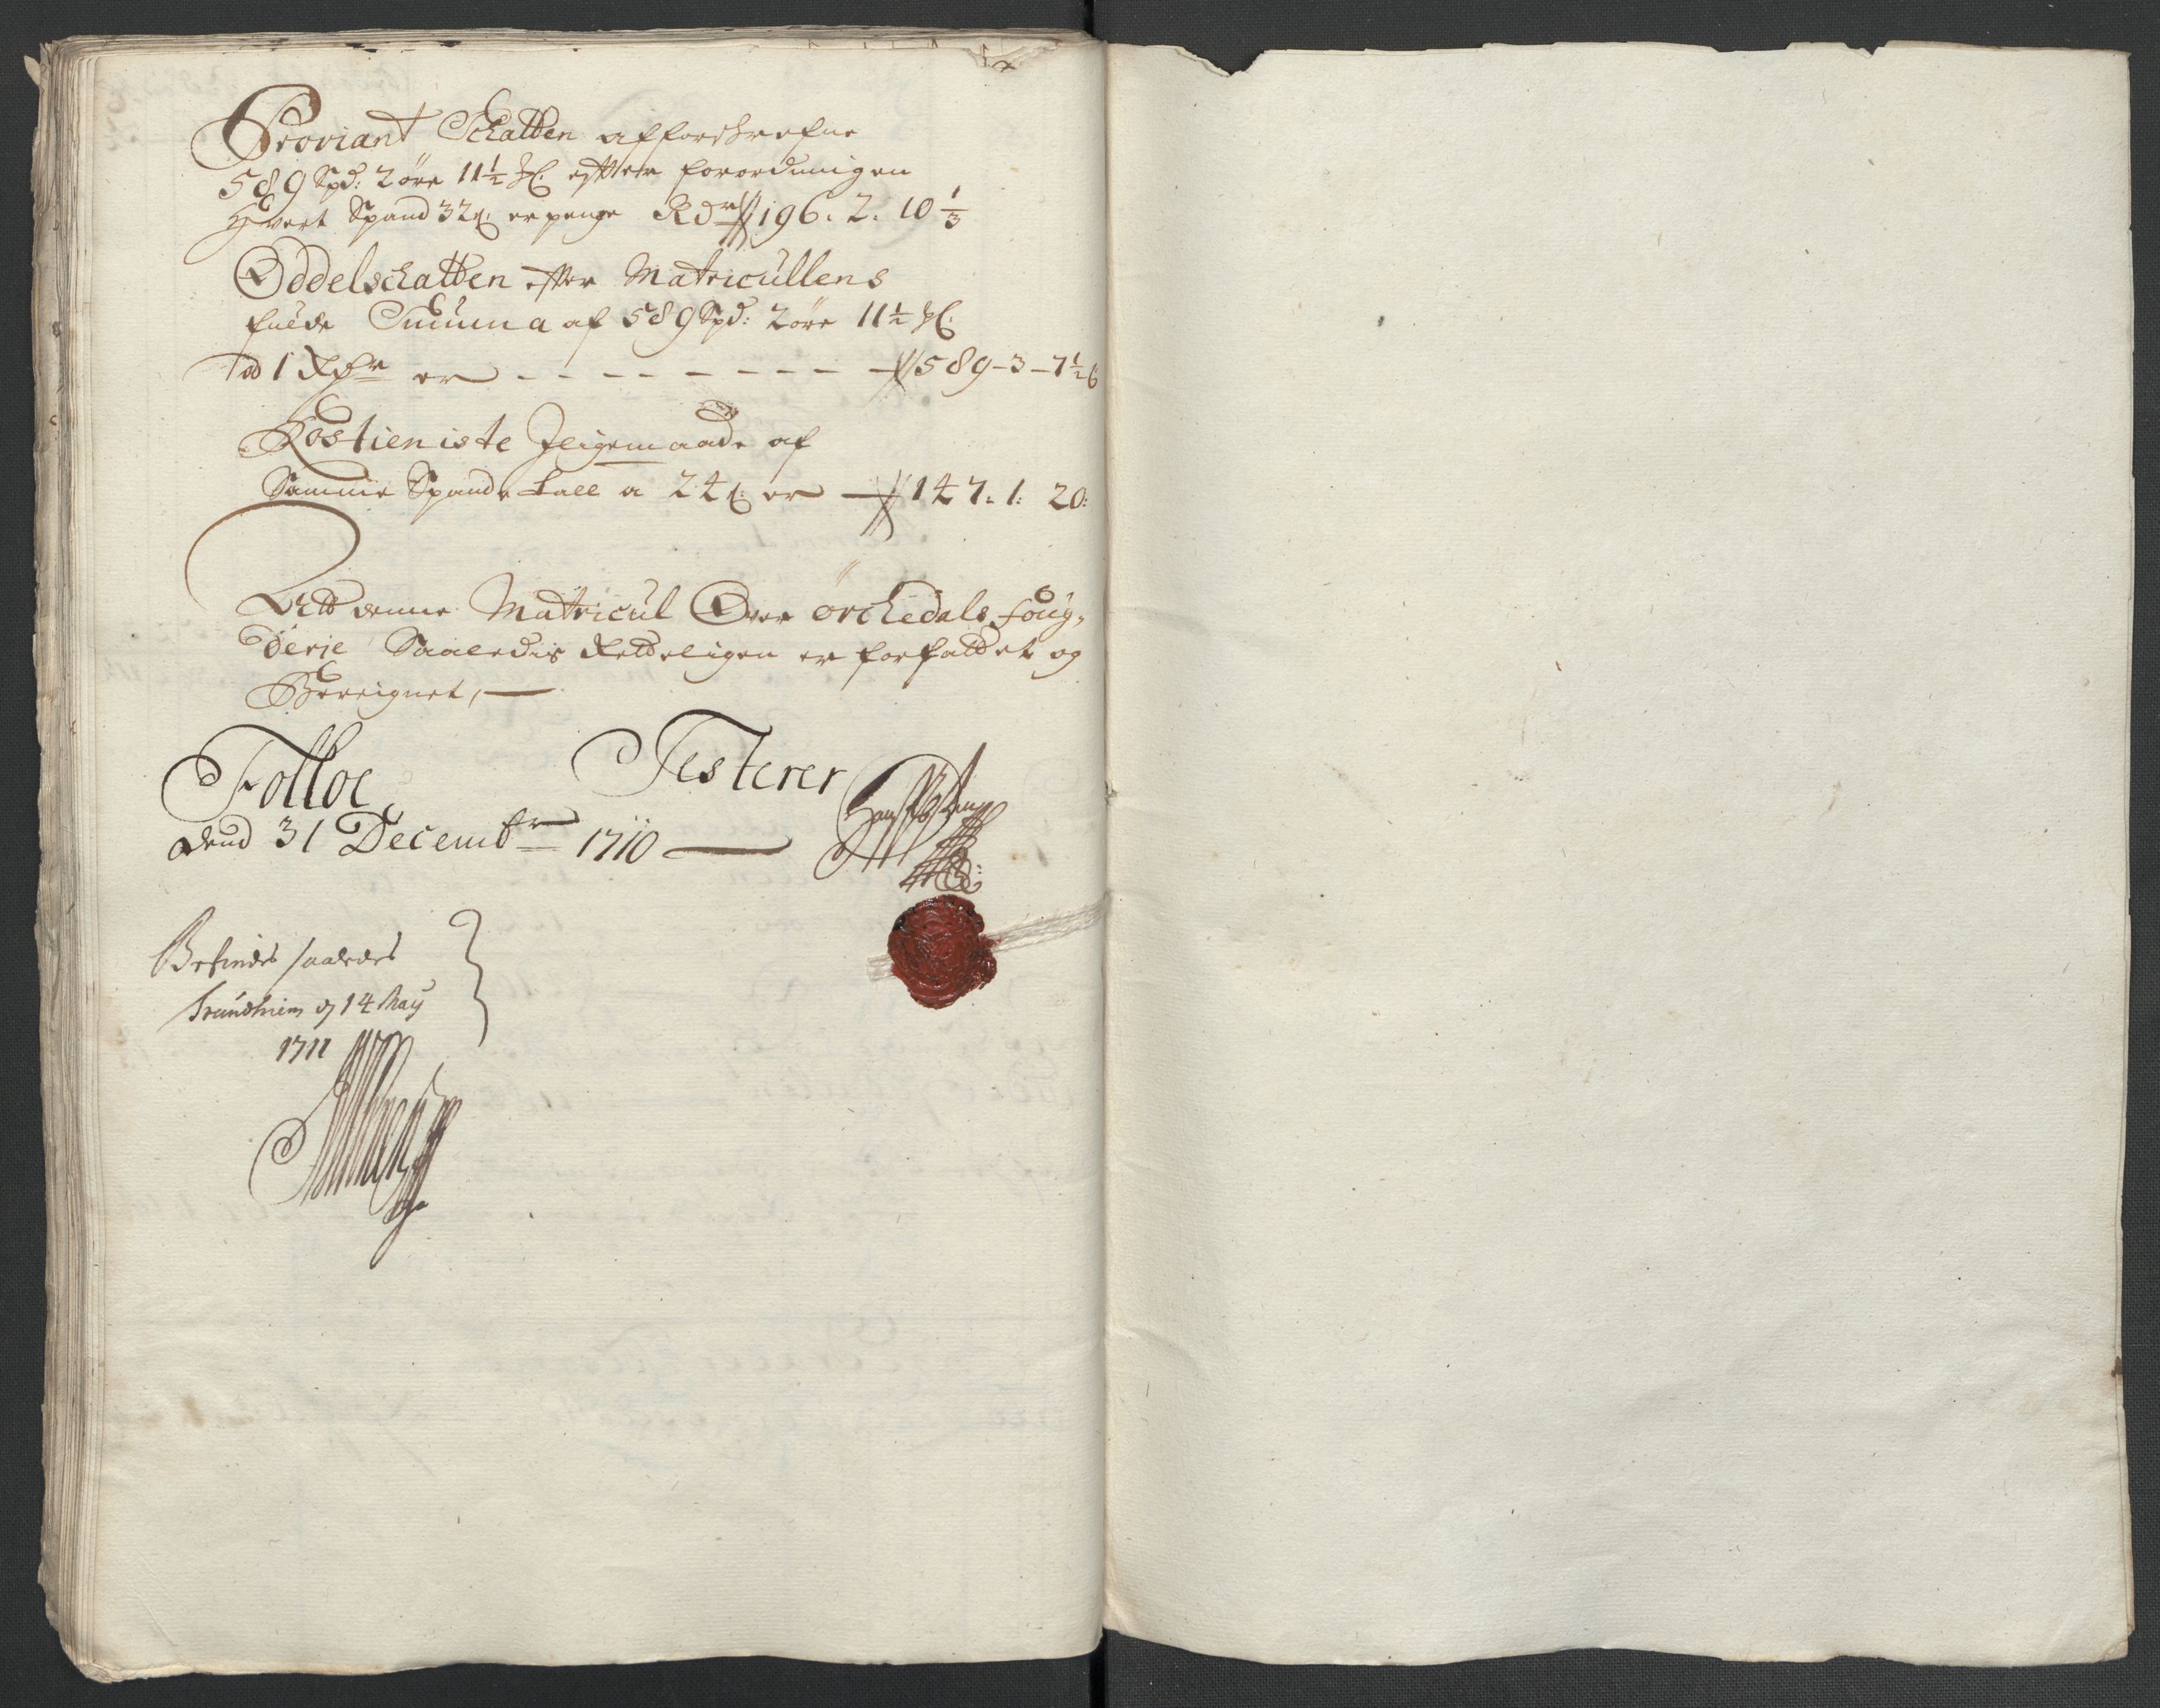 Proviant Schatten af forschrefne
589 Spd: 2 öre 11½ Ml. effter forordningen
Hvert Spand 32 s: er penge Rdr 196. 2. 10⅓
Oddelschatten effter Matricullens
fulde Summa af 589 Spd: 2 öre 11½ Ml.
ad 1 Rdr er - - - - - - - - - 589-3-7½
Rostieniste Jligemaade af
Samme Spande tall a 24 s: er — 147. 1: 20:
Att denne Matricul Over örchedals Foug-
derie Saaledis Retteligen er forfattet og
Bereignet, —
Folloe Testerer
dend 31 Decembr 1710 —
Befindes saaledes
Trundhiem d 14 May
1711